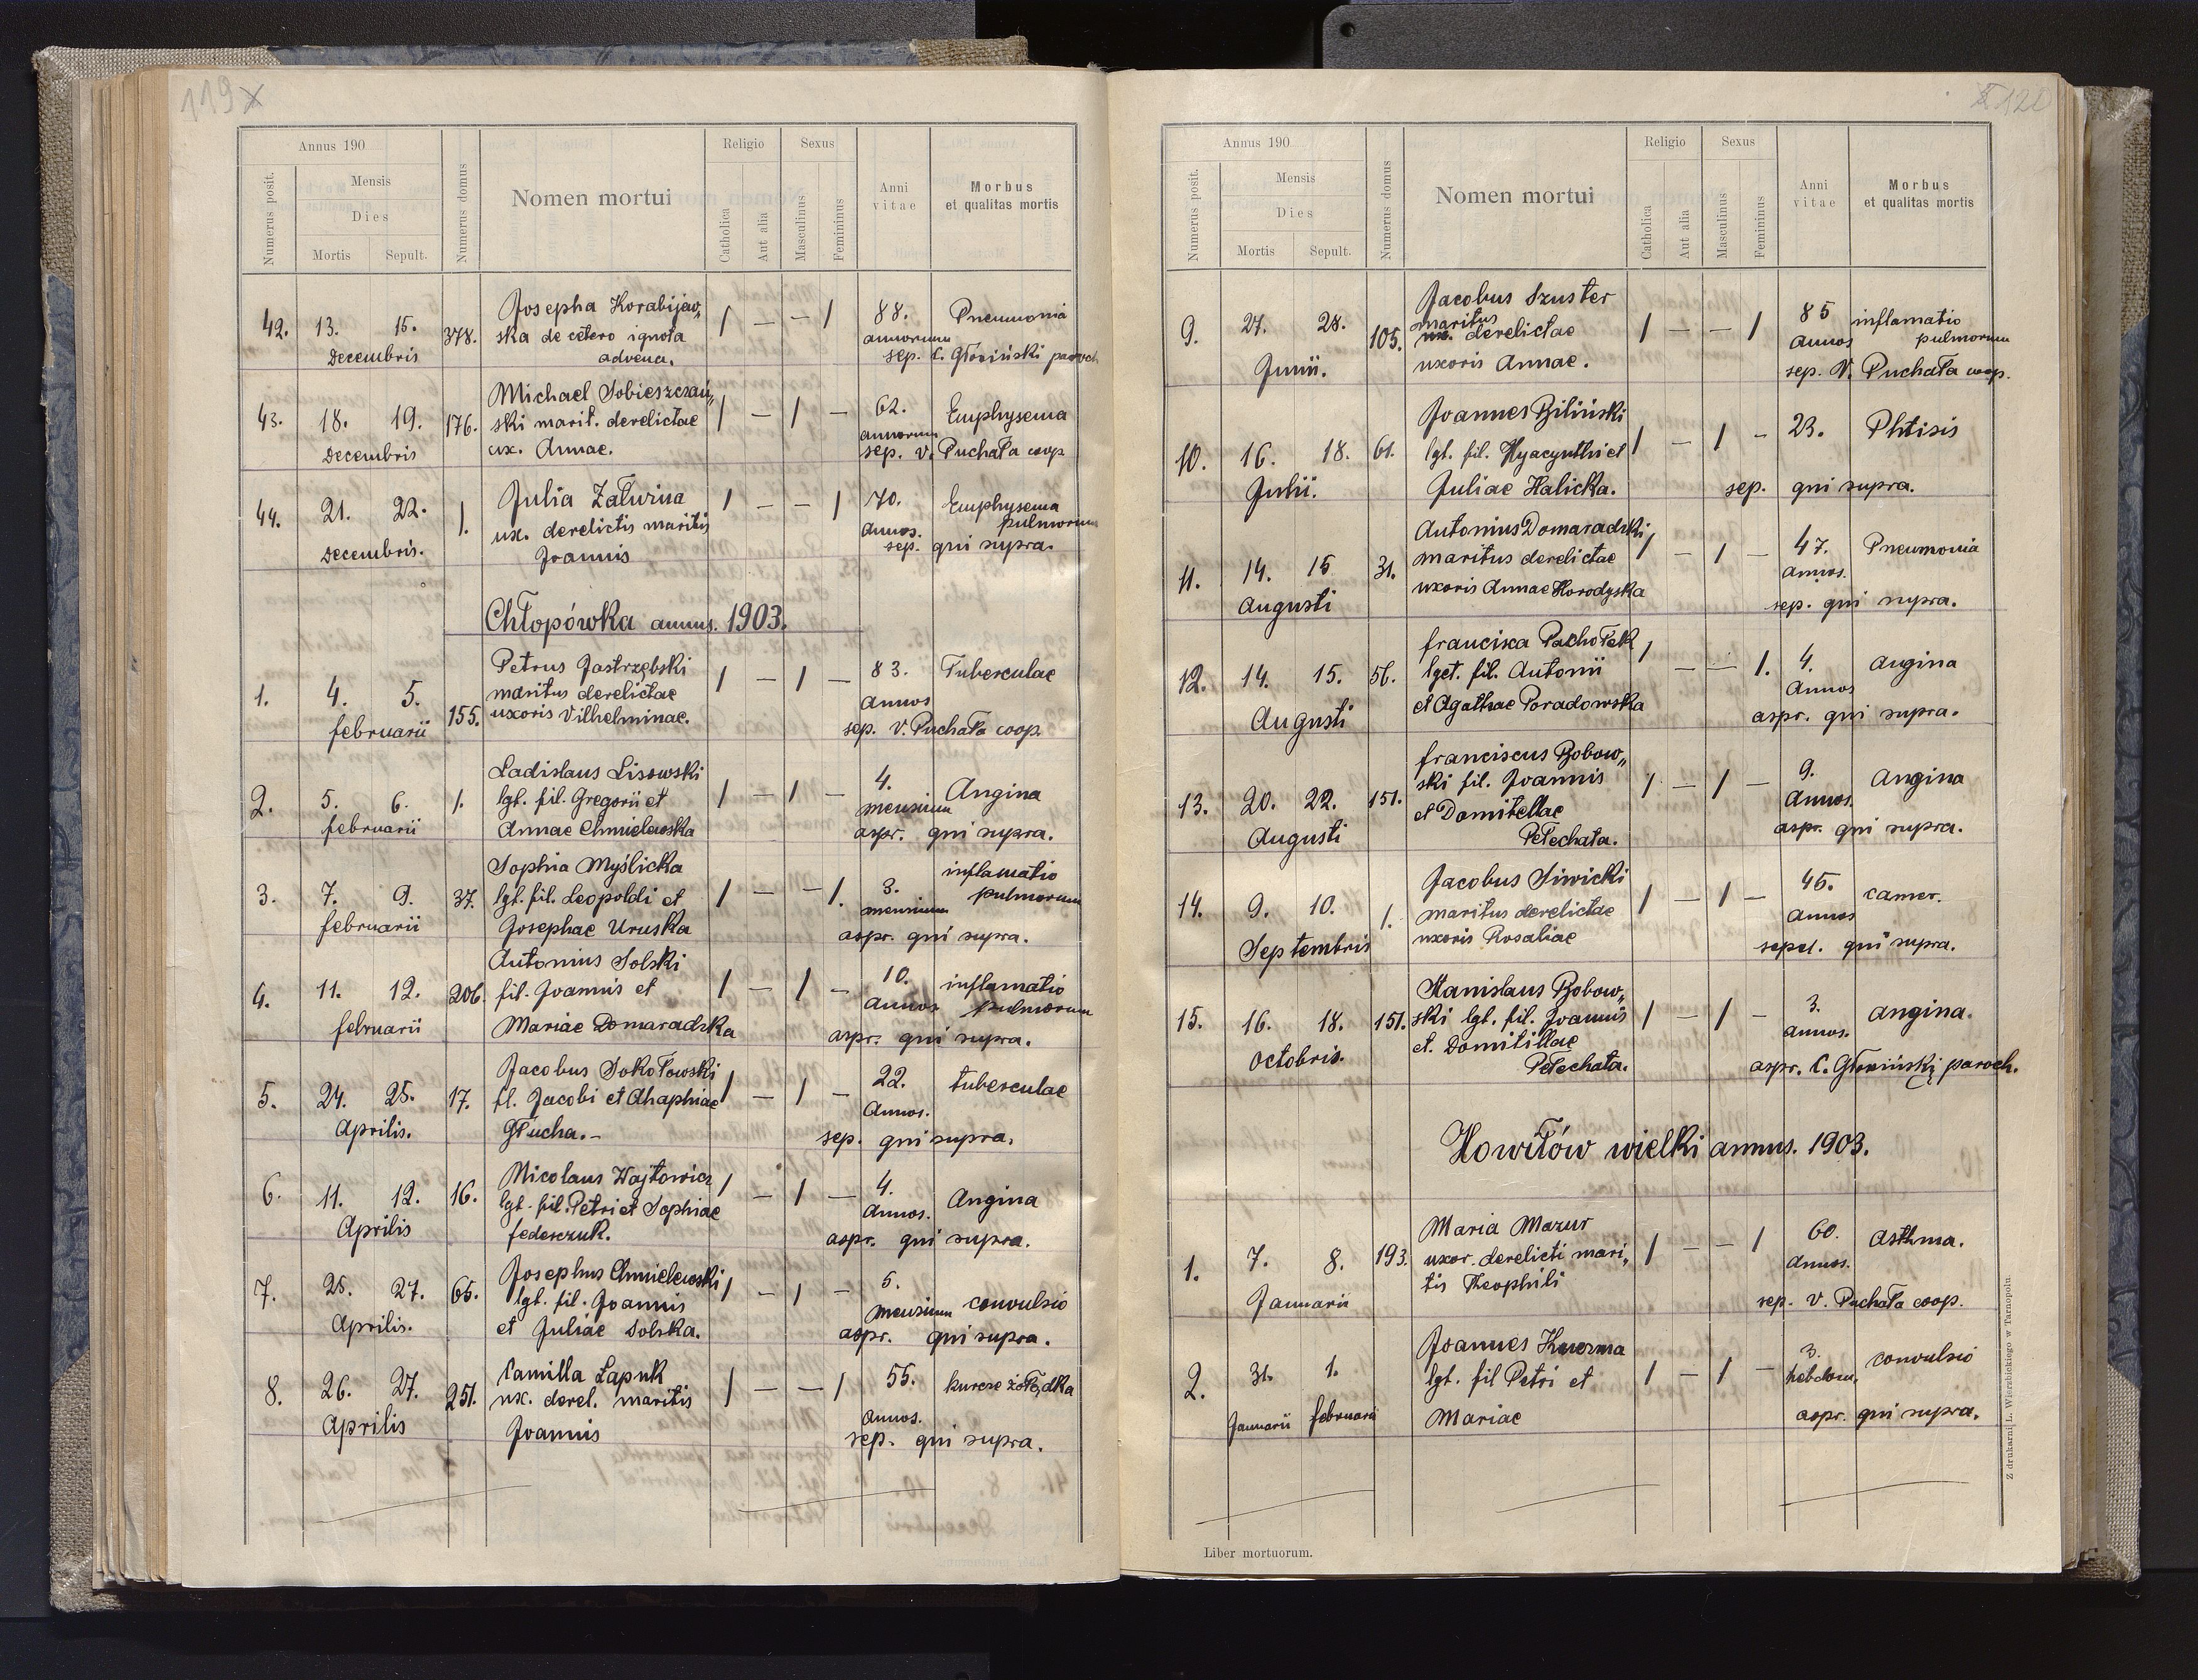 119
Annus 190
Numerus posit.
Mensis
Dies
Mortis Sepult.
Numerus domus
Nomen mortui
Religio
Catholica
Aut alia
Sexus
Masculinus
Femininus
Anni vitae
Morbus et qualitas mortis
42. 13. 15. Decembris 378.
Josepha Korabijow„
ska de cetero ignota
advena.
/ — — / 88. annorum Pneumonia
sep. C. Głoziński paroch
43. 18. 19. Decembris 176.
Michael Sobieszczań„
ski marit. derelictae
ux. Annae.
/ — / — 62. annorum Emphysema
sep. V. Puchała coop
44. 21. 22. Decembris. 1.
Julia Załuzina
ux. derelictis maritis
Joannis
/ — — / 70. annos. Emphysema pulmorum
sep. qui supra.
Chłopówka annus. 1903.
1. 4. 5. februarii 155.
Petrus Jastrzębski
maritus derelictae
uxoris Vilhelminae.
/ — / — 83. annos Tuberculae
sep. V. Puchała coop.
2. 5. 6. februarii 1.
Ladislaus Lisowski
lgt. fil. Gregorii et
Annae Chmielewska
/ — / — 4. mensium Angina
aspr. qui supra.
3. 7. 9. februarii 37.
Sophia Myślicka
lgt. fil. Leopoldi et
Josephae Uruska
/ — — /. 3. mensium inflamatio pulmorum
aspr. qui supra.
4. 11. 12. februarii 206.
Antonius Solski
fil. Joannis et
Mariae Domaradzka
/ — / — 10. annos inflamatio pulmorum
aspr. qui supra.
5. 24. 25. Aprilis. 17.
Jacobus Sokołowski
fl. Jacobi et Ahaphiae
Głucha.-
/ — / — 22. Annos. tuberculae
sep. qui supra.
6. 11. 12. Aprilis 16.
Nicolaus Wojtowicz
lgt. fil. Petri et Sophiae
federczuk.
/ — / — 4. Annos. Angina
aspr. qui supra.
7. 25. 27. Aprilis. 65.
Josephus Chmielewski
lgt. fil. Joannis
et Juliae Solska.
/ — / — 5. mensium convulsio
aspr. qui supra.
8. 26. 27. Aprilis 251.
Camilla Łapuk
ux. derel. maritis
Joannis
/ — — / 55. annos. kurcze żołądka
sep. qui supra.
120
Annus 190
Numerus posit.
Mensis
Dies
Mortis Sepult.
Numerus domus
Nomen mortui
Religio
Catholica
Aut alia
Sexus
Masculinus
Femininus
Anni vitae
Morbus et qualitas mortis
9. 27. 28. Junii. 105.
Jacobus Szuster
maritus
ux. derelictae
uxoris Annae.
/ — — / 85 annos inflamatio pulmorum
sep. V. Puchała coop.
10. 16. 18. Julii. 61.
Joannes Biliński
lgt. fil. Hyacynthi et
Juliae Halicka.
/ — / — 23. Phtisis
sep. qui supra.
11. 14. 15 Augusti 31.
Antonius Domaradzki
maritus derelictae
uxoris Annae Horodyska
/ — / — 47. annos. Pneumonia
sep. qui supra.
12. 14. 15. Augusti 56.
francisca Pachołek
lget. fil. Antonii
et Agathae Poradowska
/ — — /. 4. Annos Angina
aspr. qui supra.
13. 20. 22. Augusti 151.
franciscus Bobow„
ski fil. Joannis
et Domitellae
Pełechata.
/ — / — 9. Annos. Angina
aspr. qui supra.
14. 9. 10. Septembris 1.
Jacobus Siwicki
maritus derelictae
uxoris Rosaliae
/ — / — 45. annos camer.
sepel. qui supra.
15. 16. 18. Octobris. 151.
Stanislaus Bobow„
ski lgt. fil. Joannis
et. Domitillae
Pełechata.
/ — / — 3. annos. angina.
aspr. C. Głoziński paroch.
Howiłów wielki annus. 1903.
1. 7. 8. Januarii 193.
Maria Mazur
uxor. derelicti mari„
tis Theophili
/ — — / 60. annos. Asthma.
sep. V. Puchała coop.
2. 31. 1. Januarii februarii
Joannes Kuczma
lgt. fil Petri et
Mariae
/ — / — 3. hebdom. convulsio
aspr. qui supra.
Liber mortuorum.
Z drukarni L. Wierzbickiego w Tarnopolu.